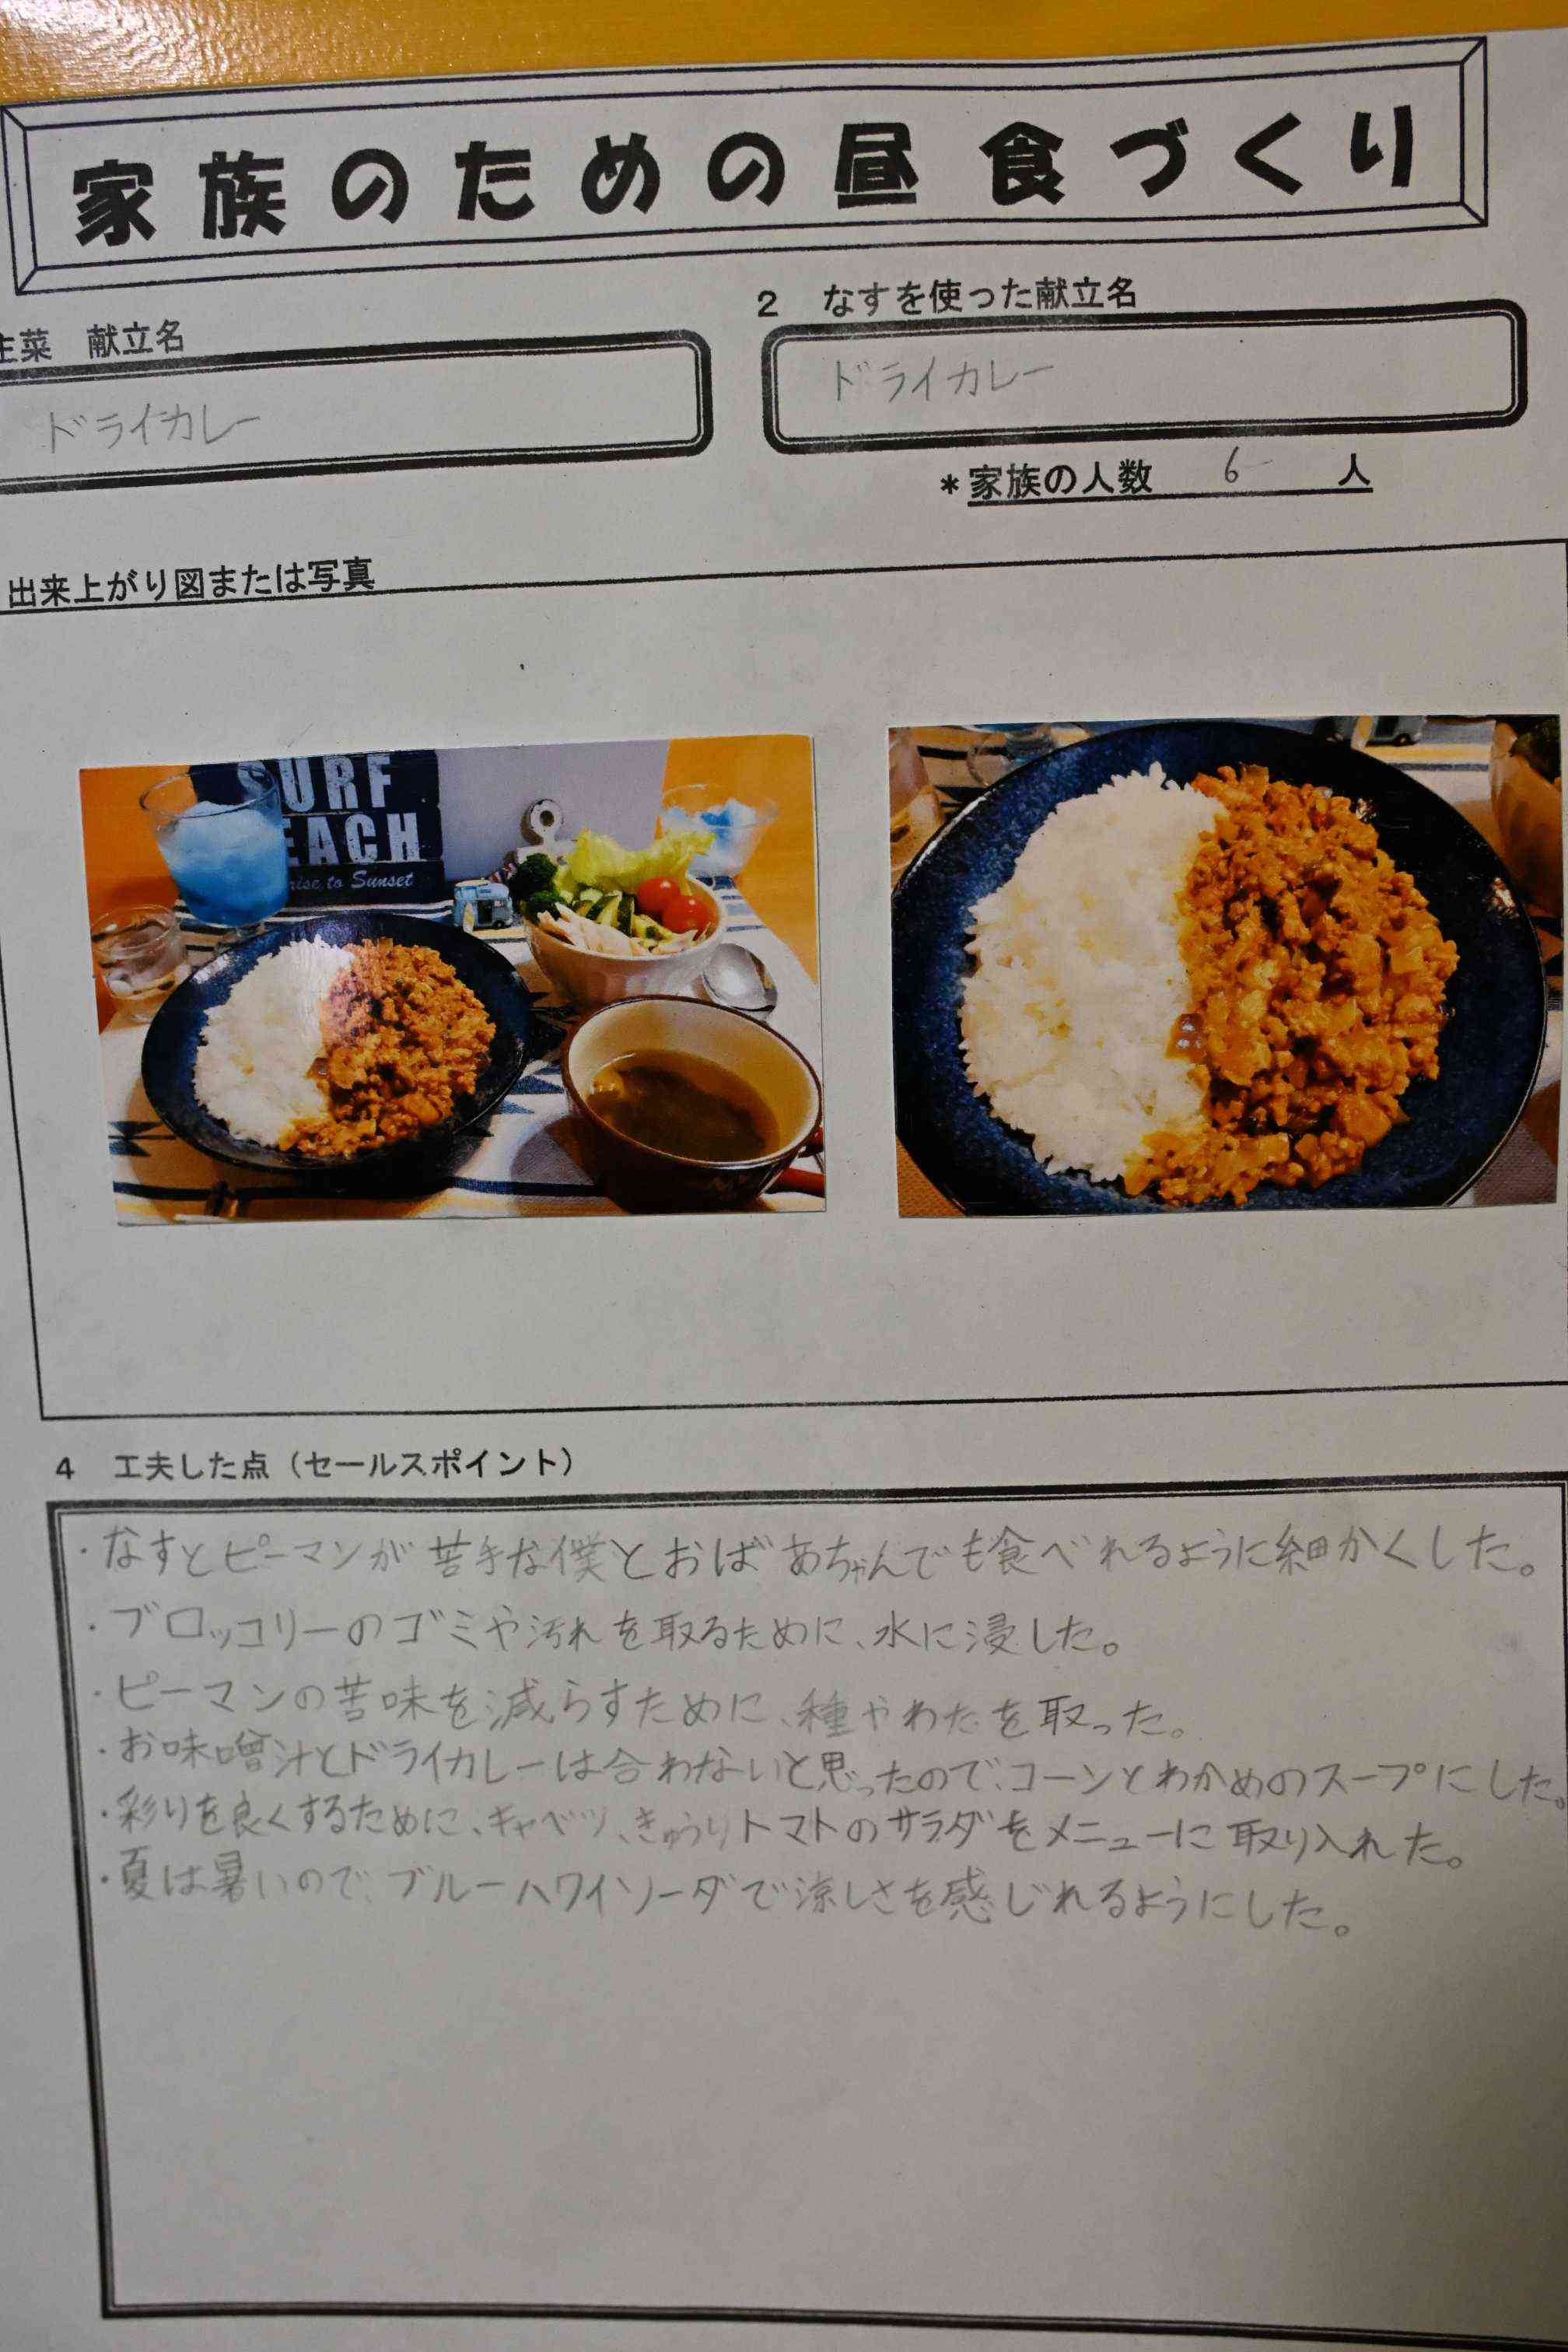 家族のための昼食づくり
主菜 献立名
ドライカレー
2 なすを使った献立名
ドライカレー
*家族の人数 6 人
出来上がり図または写真
SURF
EACH
rise to Sunset
4 工夫した点(セールスポイント)
・なすとピーマンが苦手な僕とおばあちゃんでも食べれるように細かくした。
・ブロッコリーのゴミや汚れを取るために、水に浸した。
・ピーマンの苦味を減らすために、種やわたを取った。
・お味噌汁とドライカレーは合わないと思ったので、コーンとわかめのスープにした。
・彩りを良くするために、キャベツ、きゅうりトマトのサラダをメニューに取り入れた。
・夏は暑いので、ブルーハワイソーダで涼しさを感じれるようにした。